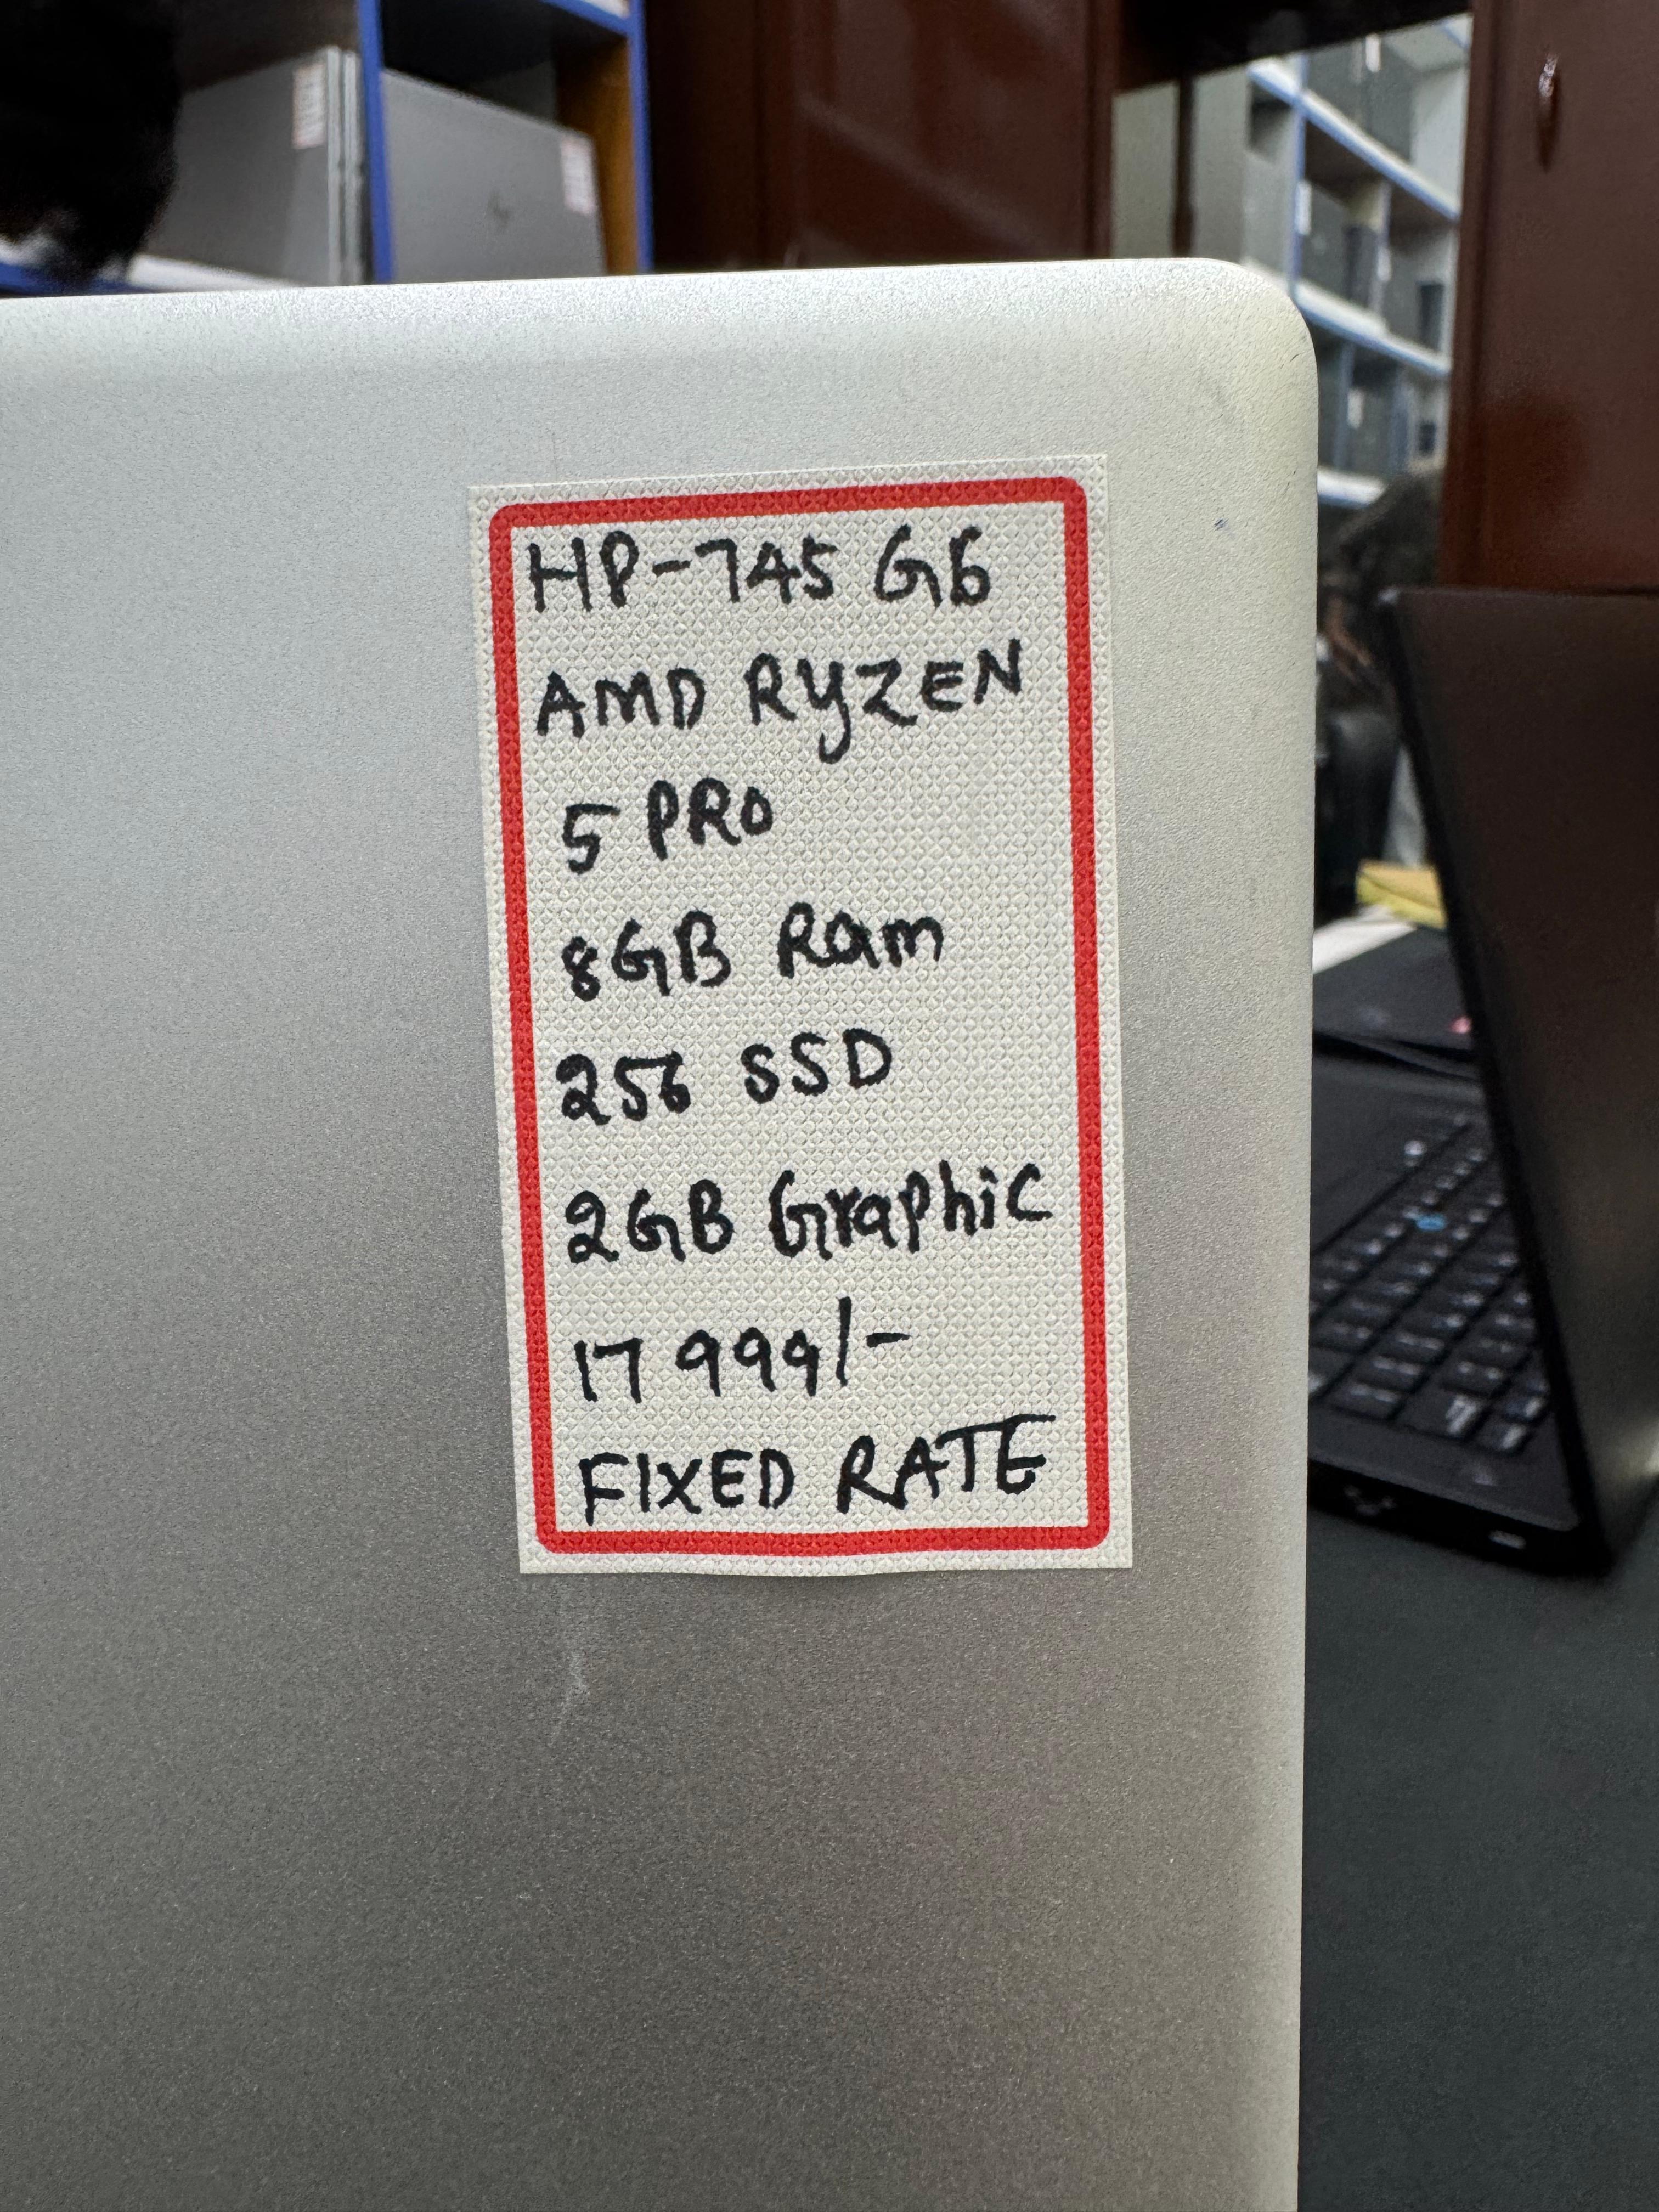 HP-745 G6
AMD RYZEN
5 PRO
8GB Ram
256 SSD
2GB Graphic
17999/-
FIXED RATE